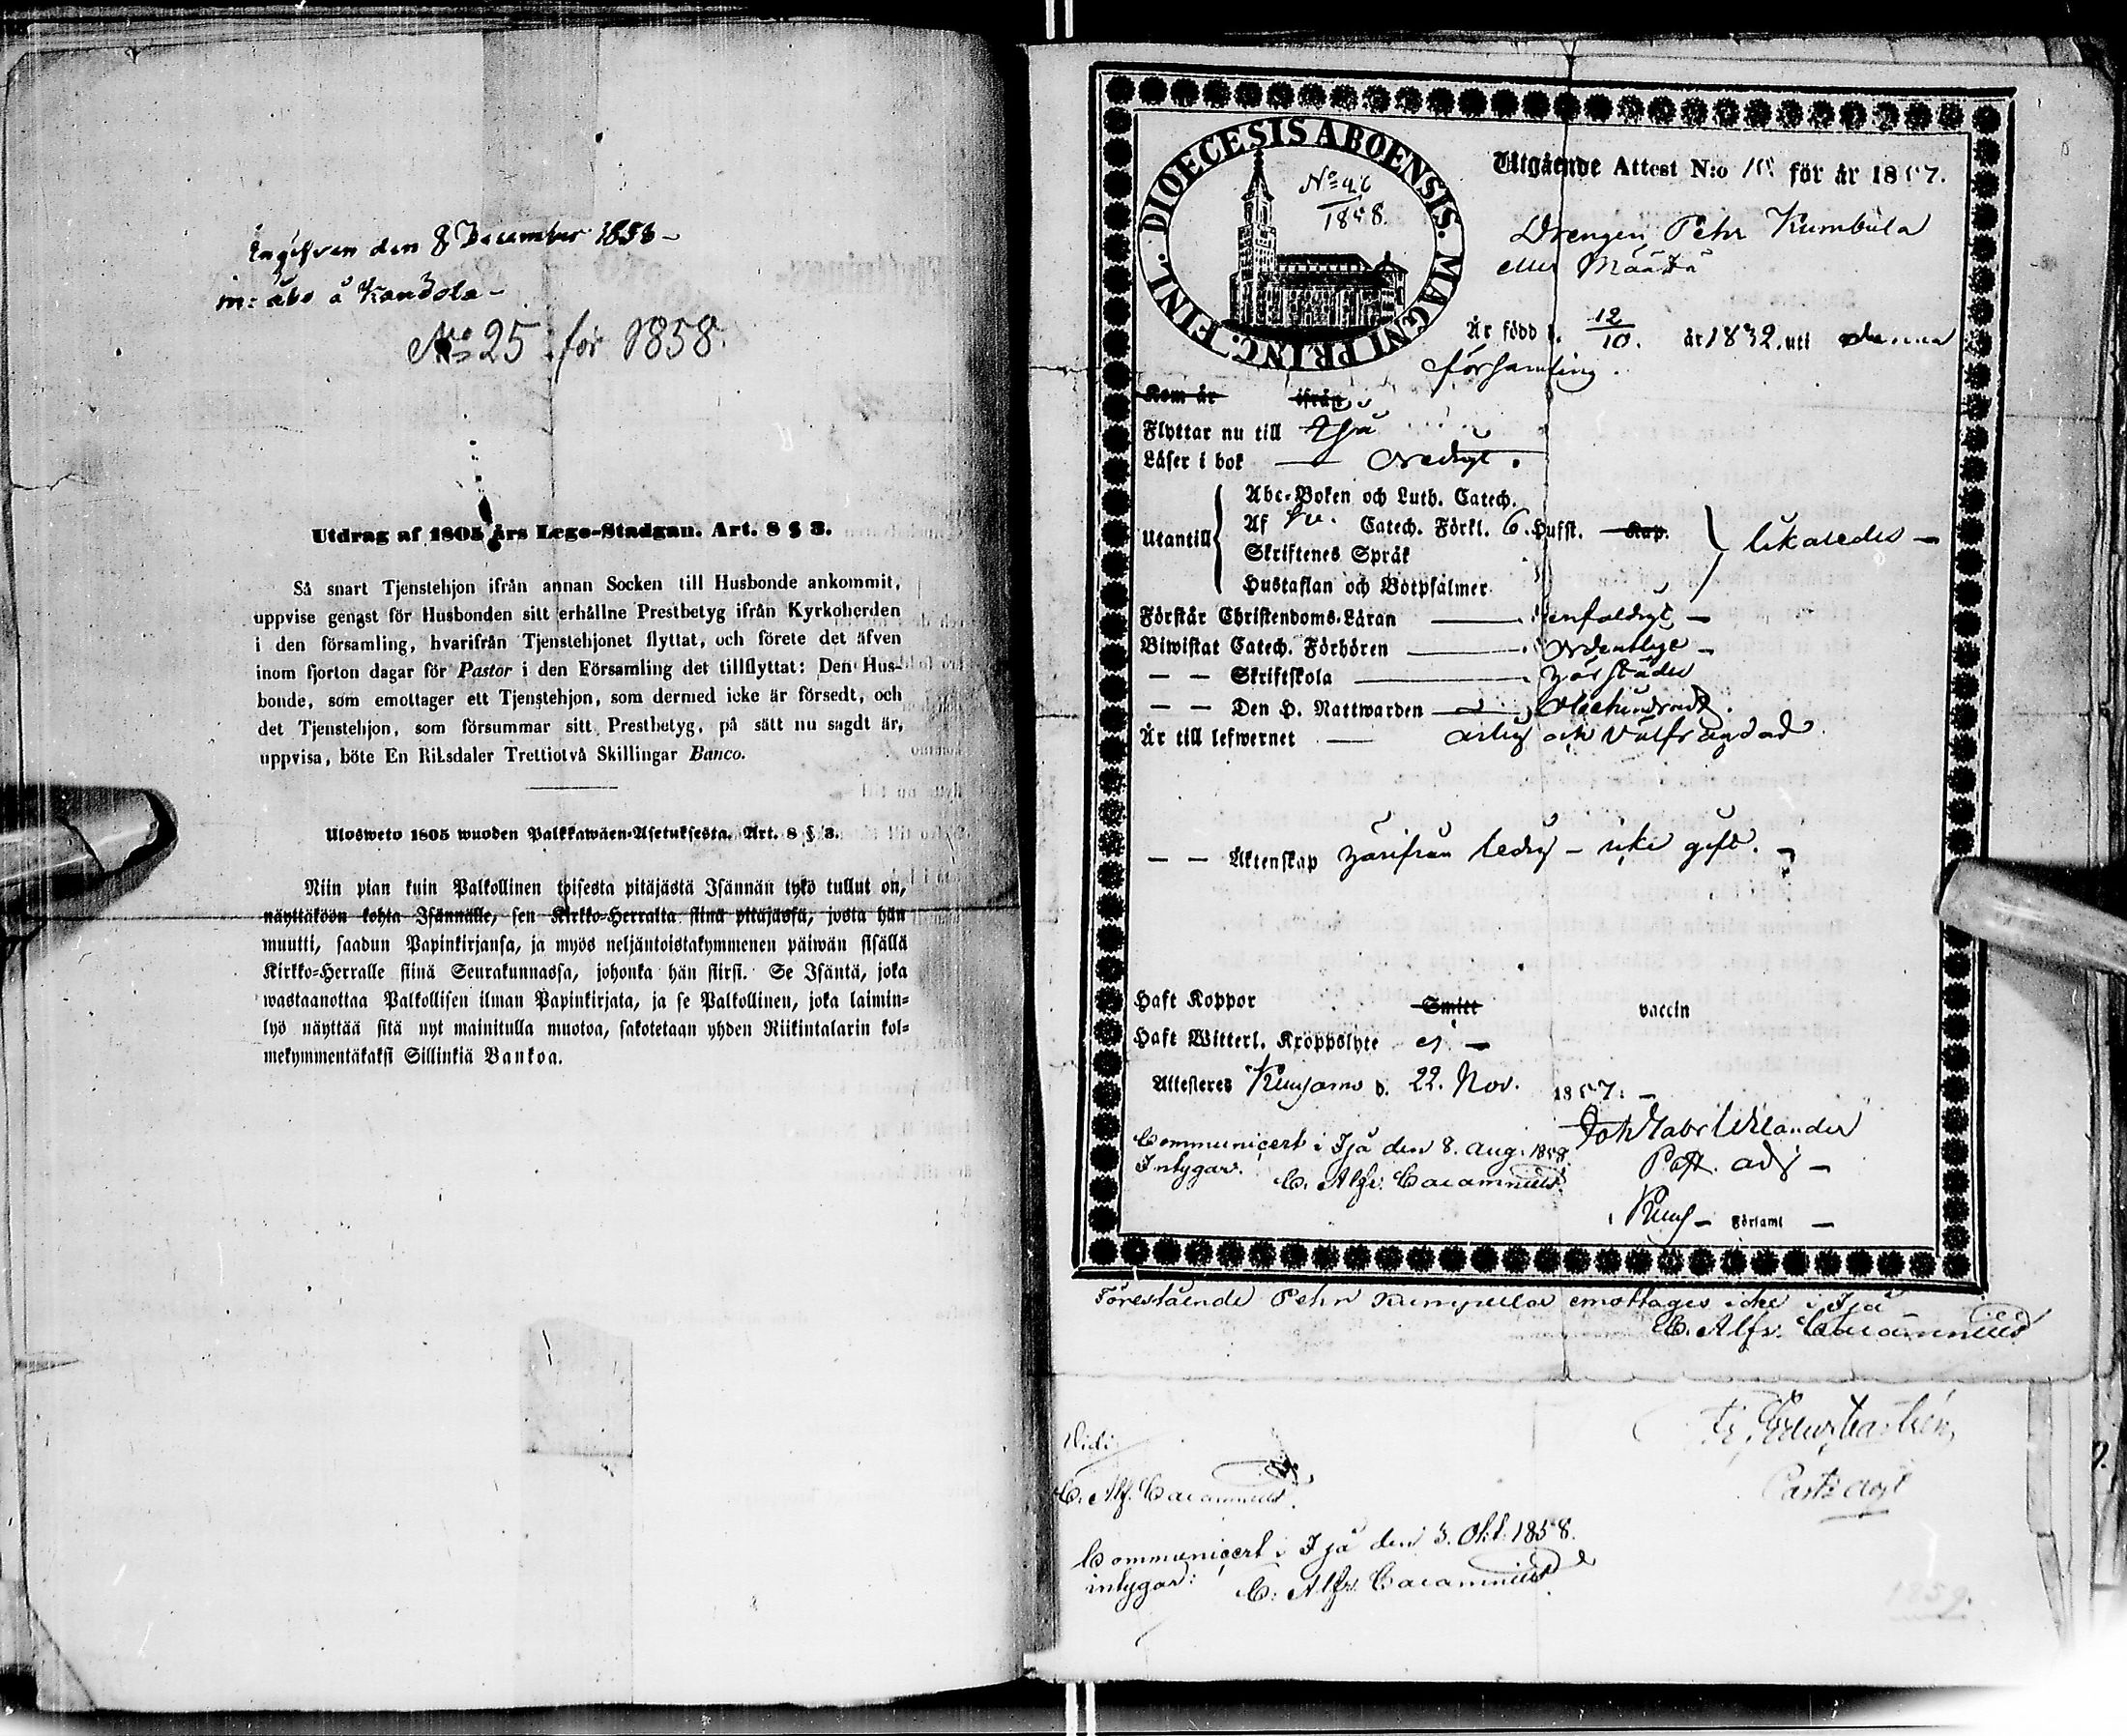 Ingifven den 8 December 1858 –
in: åbo å Kandola –
No 25 för 1858.
Utdrag af 1805 års Lego-Stadgan. Art. 8 § 3.
Så snart Tjenstehjon ifrån annan Socken till Husbonde ankommit,
uppvise genast för Husbonden sitt erhållne Prestbetyg ifrån Kyrkoherden
i den församling, hvarifrån Tjenstehjonet flyttat, och förete det äfven
inom fjorton dagar för Pastor i den Församling det tillflyttat: Den Hus-
bonde, som emottager ett Tjenstehjon, som dermed icke är försedt, och
det Tjenstehjon, som försummar sitt Prestbetyg, på sätt nu sagdt är,
uppvisa, böte En Riksdaler Trettiotvå Skillingar Banco.
Ulosweto 1805 wuoden Palkkawäen-Asetuksesta. Art. 8 § 3.
Niin pian kuin Palkollinen toisesta pitäjästä Isännän tykö tullut on,
näyttäköön kohta Isännälle, sen Kirkko-Herralta siinä pitäjässä, josta hän
muutti, saadun Papinkirjansa, ja myös neljäntoistakymmenen päiwän sisällä
Kirkko-Herralle siinä Seurakunnassa, johonka hän siirsi. Se Isäntä, joka
wastaanottaa Palkollisen ilman Papinkirjata, ja se Palkollinen, joka laimin-
lyö näyttää sitä nyt mainitulla muotoa, sakotetaan yhden Riikintalarin kol-
mekymmentäkaksi Sillinkiä Bankoa.
DIOECESIS ABOENSIS. MAGNI PRINC. FINL.
No 46
1858.
Utgående Attest N:o för år 1857.
Drengen Pehr Kumbula
eller Määttä
Är född d. 12/10. år 1832. uti denna
församling.
Kom år ifrån
Flyttar nu till Ijå
Läser i bok — Oredigt.
Utantill
Abc-Boken och Luth. Catech.
Af Sv. Catech. Förkl. 6. Hufst. Kap.
Skriftenes Språk
Hustaflan och Botpsalmer
likaledes –
Förstår Christendoms-Läran — enfaldigt –
Biwistat Catech. Förhören — Ordentlige –
– – Skriftskola —
– – Den H. Nattwarden —
Är till lefwernet — ärlig och välfrägdad.
– – Äktenskap härifrån ledig – icke gift. –
Haft Koppor Smitt vaccin
Haft Witterl. Kroppslyte ej –
Attesteres Kuusamo d. 22. Nov. 1857: –
Joh Gabr Wilander
Past. adj –
i Kuus – Församl –
Communicert i Ijå den 8. Aug. 1858.
Intygar. C. Alfr. Cajamnius
Förestående Pehr Kumpula emottages icke i Ijå –
C. Alfr. Cajamnius
Vidi
C. Alf. Cajamnius.
Past: Adj:
Communicert i Ijå den 3. Okt. 1858.
intygar: C. Alfr. Cajamnius
1859.